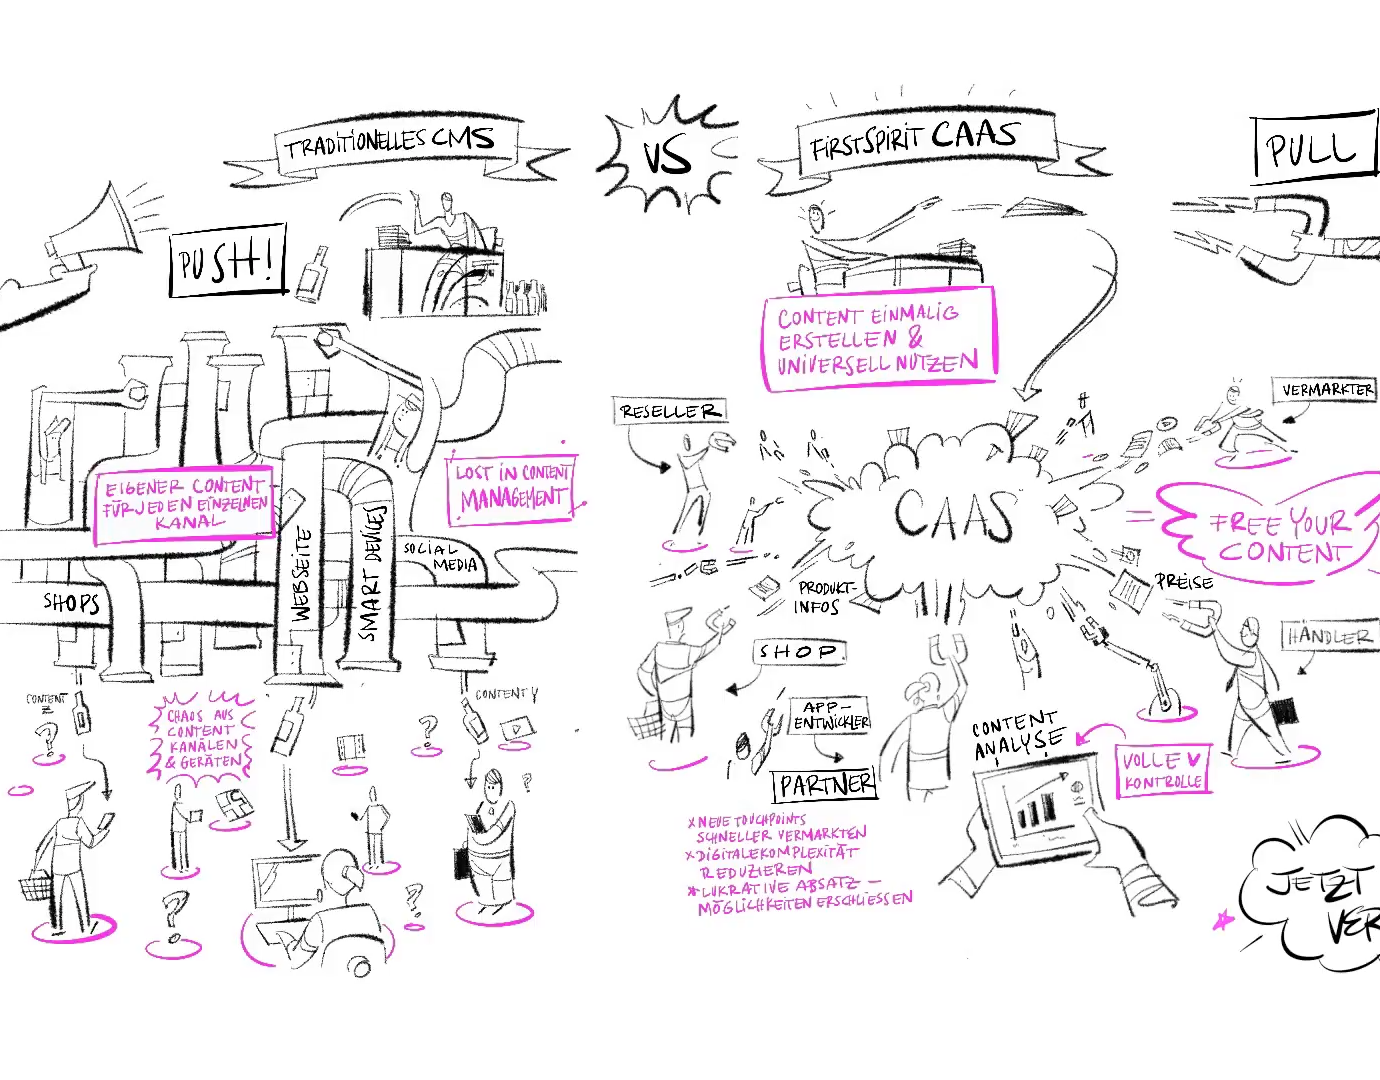 TRADITIONELLES CMS
VS
FIRSTSPIRIT CAAS
PULL
PUSH!
CONTENT EINMALIG
ERSTELLEN &
UNIVERSELL NUTZEN
RESELLER
VERMARKTER
EIGENER CONTENT
FÜR JEDEN EINZELNEN
KANAL
LOST IN CONTENT
MANAGEMENT
CAAS
FREE YOUR
CONTENT
SHOPS
WEBSEITE
SMART DEVICES
SOCIAL
MEDIA
PRODUKT-
INFOS
PREISE
SHOP
HÄNDLER
CONTENT
Z
CHAOS AUS
CONTENT
KANÄLEN
& GERÄTEN
CONTENT Y
APP-
ENTWICKLER
PARTNER
CONTENT
ANALYSE
VOLLE
KONTROLLE
X NEUE TOUCHPOINTS
SCHNELLER VERMARKTEN
X DIGITALE KOMPLEXITÄT
REDUZIEREN
X LUKRATIVE ABSATZ-
MÖGLICHKEITEN ERSCHLIESSEN
JETZT
VER